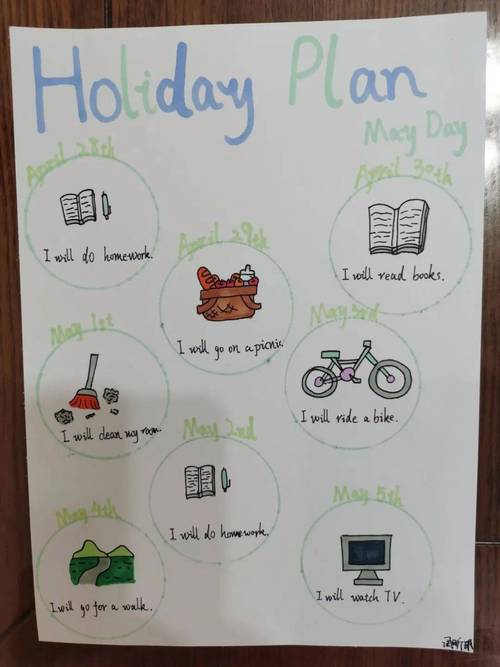 Holiday Plan
May Day
April 28th
I will do homework.
April 29th
I will go on a picnic.
April 30th
I will read books.
May 1st
I will clean my room.
May 2nd
I will do homework.
May 3rd
I will ride a bike.
May 4th
I will go for a walk.
May 5th
I will watch TV.